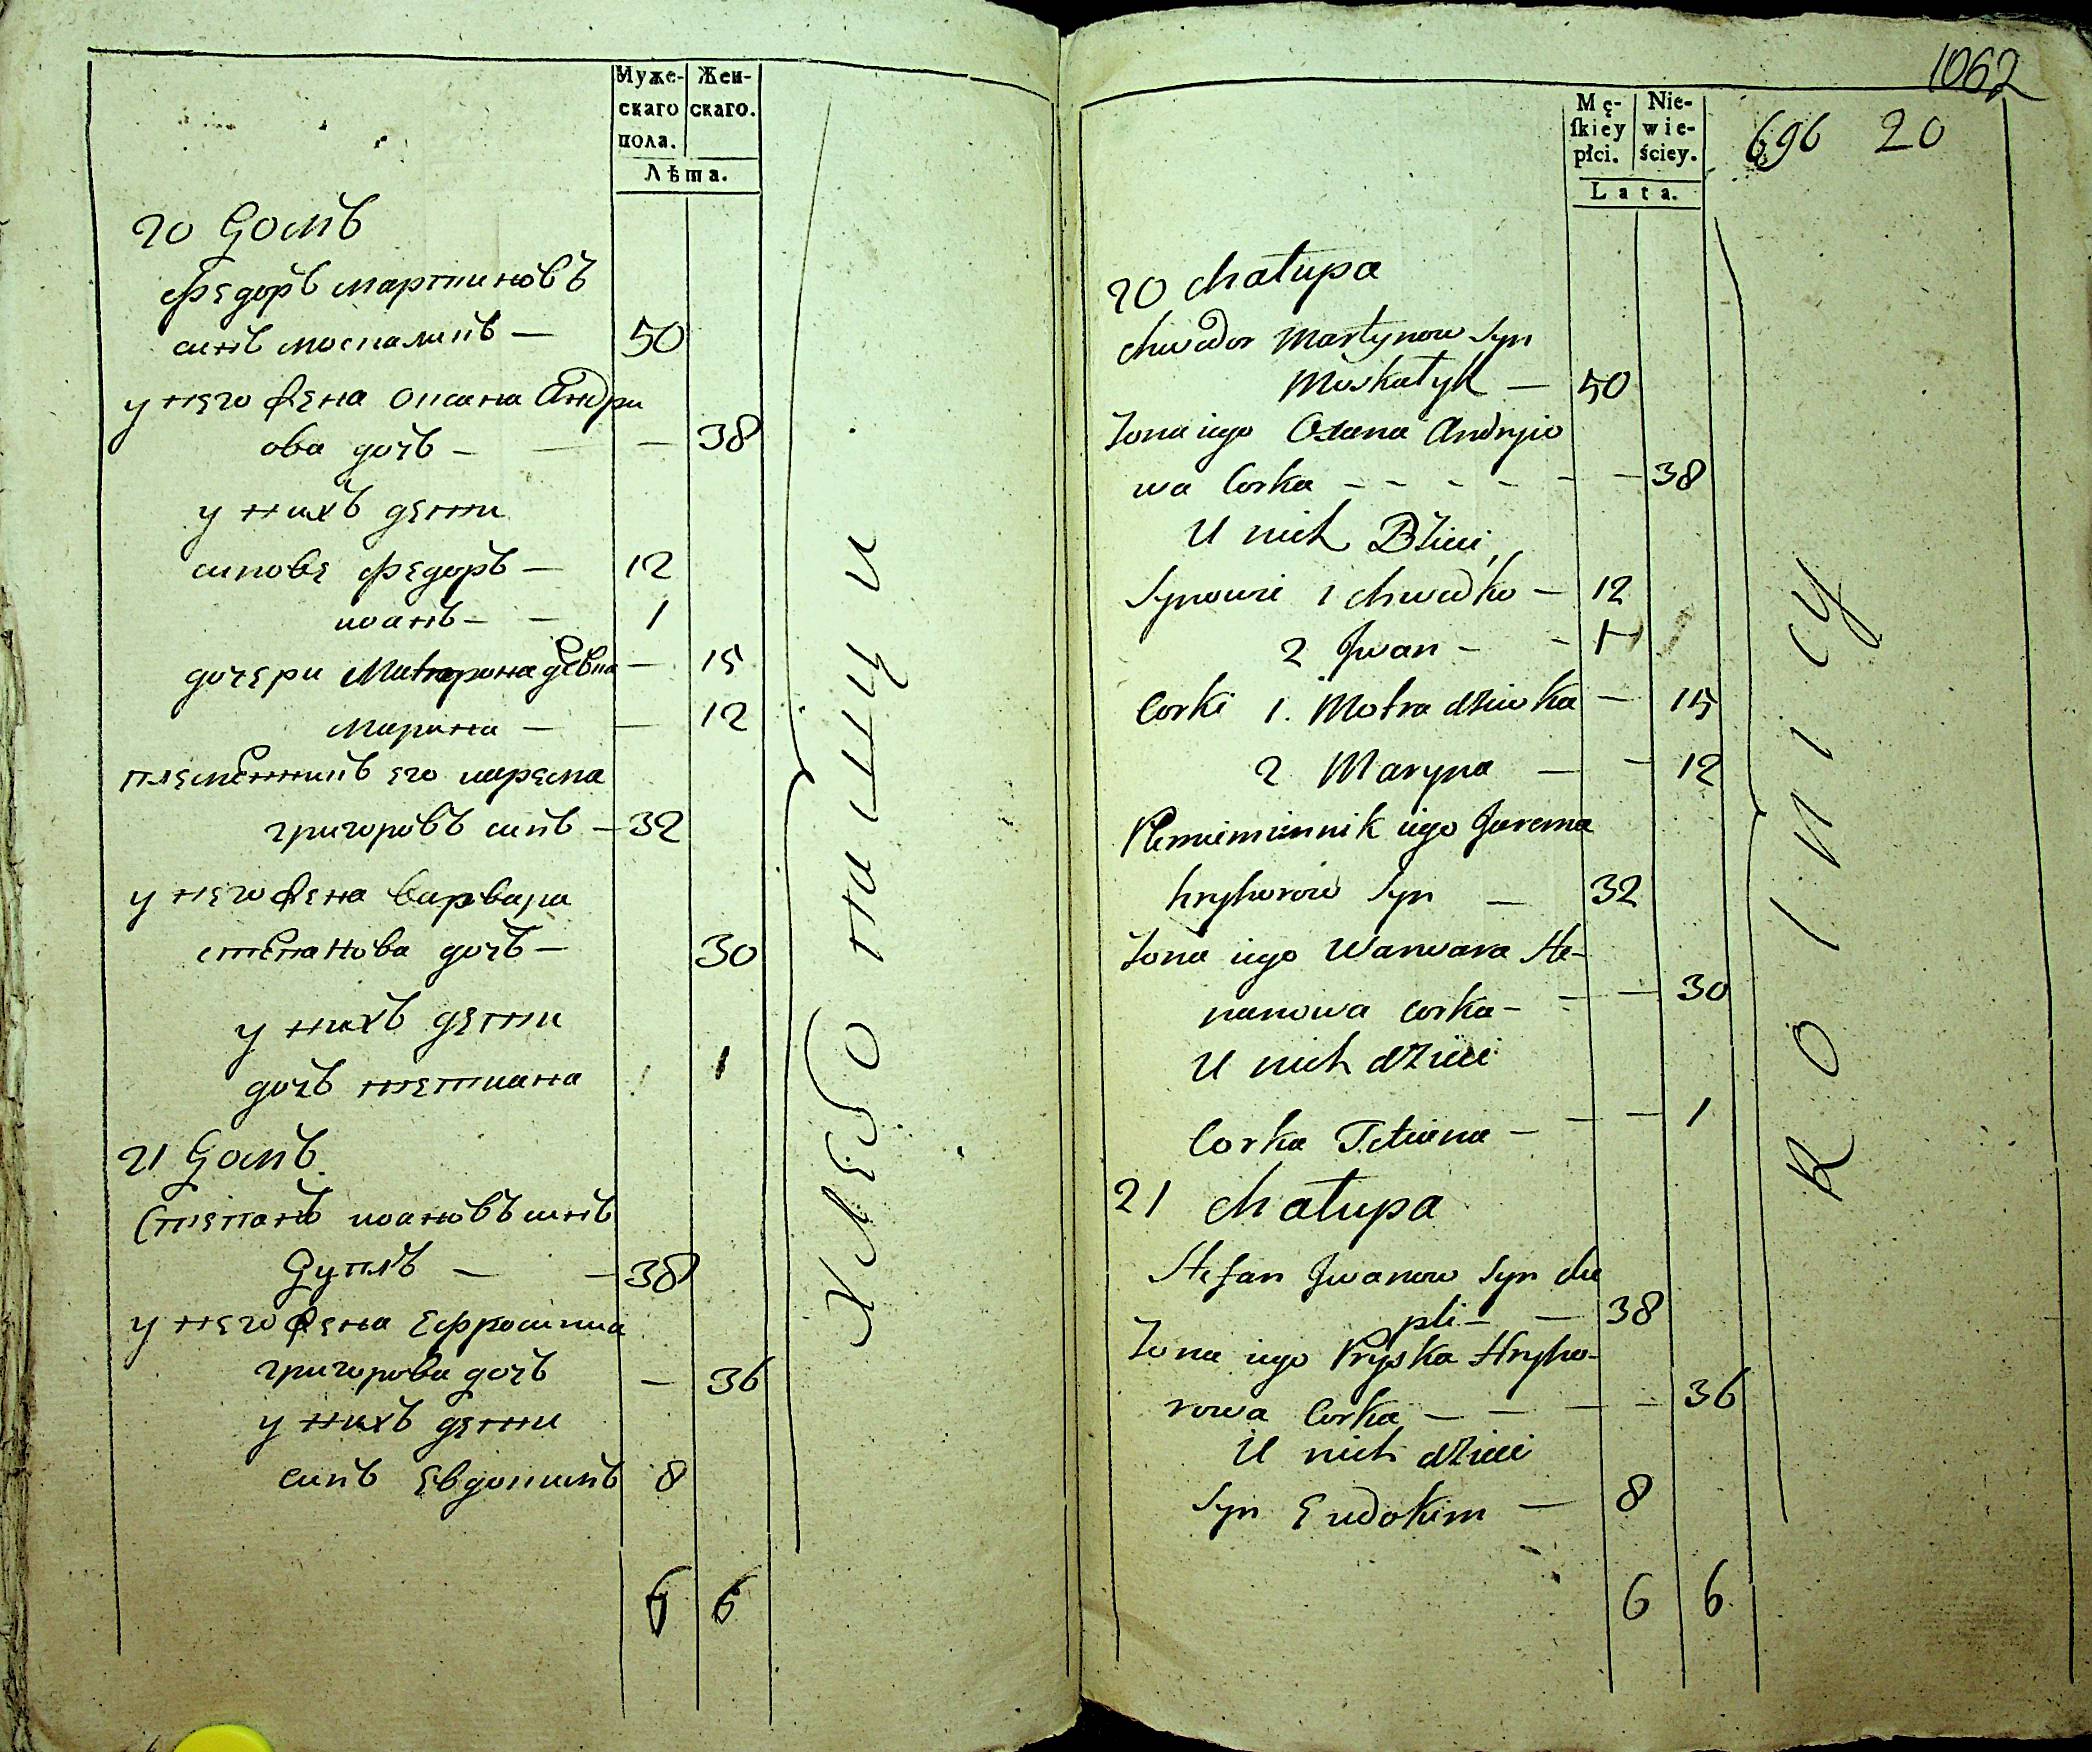 Муже-
скаго
пола.
Жен-
скаго.
Лѣта.
20 Домъ
Федоръ мартиновъ
синъ москаликъ — 50
у него жена оксана Андри
ова дочь — — — 38
у нихъ дети
синове федоръ — 12
иоанъ — — 1
дочери Матрона девка — 15
марина — — 12
племенникъ его ярема
григоровъ синъ — 32
у него жена варвара
степанова дочь — 30
у нихъ дети
дочь тетиана 1
21 Домъ
Степанъ иоановъ синъ
Дупля — — 38
у него жена Ефросиниа
григорова дочь — 36
у нихъ дети
синъ Евдокимъ 8
6 6
ХЛЕБОПАШЦИ
1062
Mę-
ſkiey
płci.
Nie-
wie-
ściey.
Lata.
696 20
20 chałupa
Chwedor Martynow Syn
Moskałyk — 50
Żona iego Oxana Andryio
wa Corka - - - - - — 38
U nich Dzieci
Synowie 1 Chwedko — 12
2 Jwan - - 1
Corki 1. Motra dziewka — 15
2 Maryna — - 12
Plemiennik iego Jarema
hryhorow Syn — 32
Żona iego Warwara Ste-
panowa corka - - — 30
U nich dzieci
Corka Tetiana — — — 1
21 chałupa
Stefan Jwanow Syn du
pli — — 38
Żona iego Pryska Hryho-
rowa Corka — — — - 36
U nich dzieci
Syn Eudokim — 8
6 6
ROLNICY